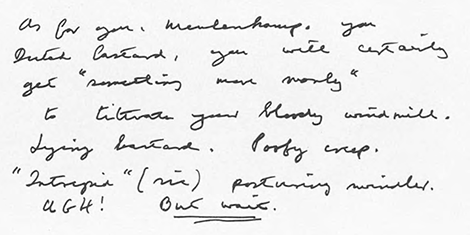 As for you, Meulenkamp, you
Dutch bastard, you will certainly
get "something more manly"
to titivate your bloody windmill.
Lying bastard. Poofy creep.
"Intrepid" (sic) posturing swindler.
UGH! But wait.